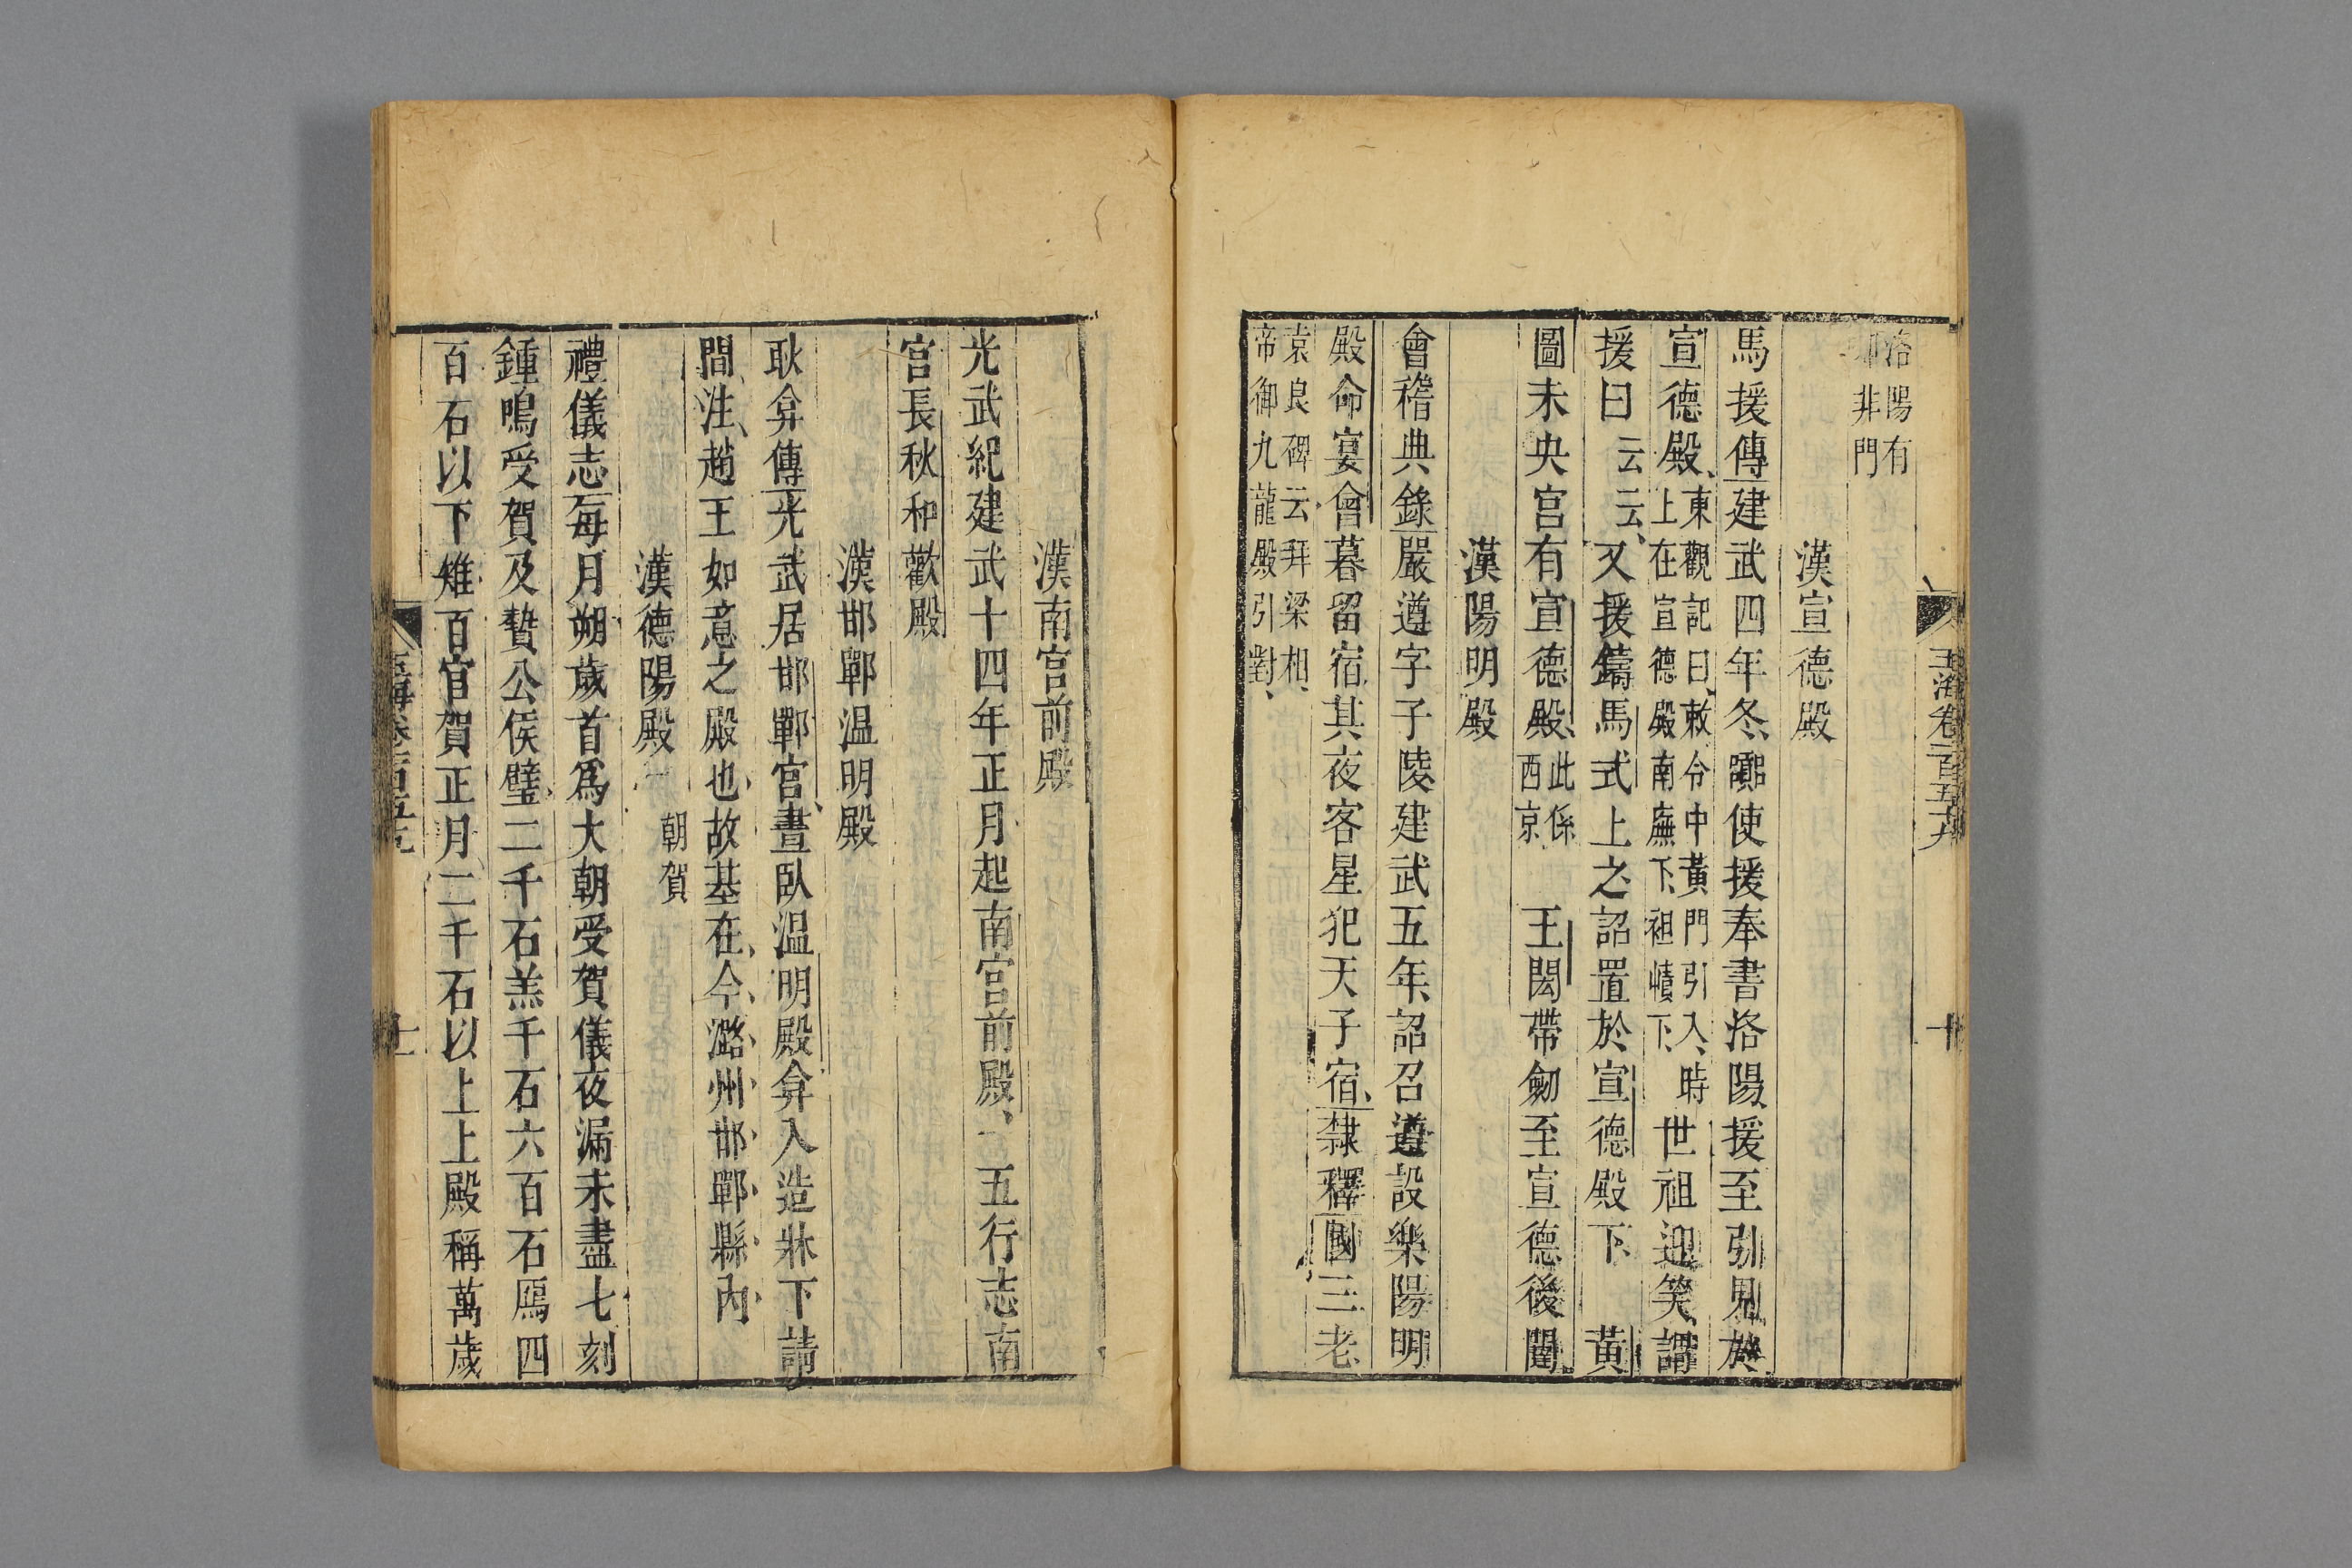 玉海卷一百五十九
十
洛陽有
非門
漢宣德殿
馬援傳建武四年冬囂使援奉書洛陽援至引見於
宣德殿東觀記曰敕令中黃門引入時
上在宣德殿南廡下袒幘下世祖迎笑謂
援曰云云又援鑄馬式上之詔置於宣德殿下 黃
圖未央宮有宣德殿此係
西京 王閎帶劒至宣德後闥
漢陽明殿
會稽典錄嚴遵字子陵建武五年詔召遵設樂陽明
殿命宴會暮留宿其夜客星犯天子宿隸釋國三老
袁良碑云拜梁相
帝御九龍殿引對
漢南宮前殿
光武紀建武十四年正月起南宮前殿 五行志南
宮長秋和歡殿
漢邯鄲温明殿
耿弇傳光武居邯鄲宮晝臥温明殿弇入造牀下請
間注趙王如意之殿也故基在今潞州邯鄲縣內
漢德陽殿 朝賀
禮儀志每月朔歲首爲大朝受賀儀夜漏未盡七刻
鍾鳴受賀及贄公侯璧二千石羔千石六百石鴈四
百石以下雉百官賀正月二千石以上上殿稱萬歲
玉海卷一百五十九
十一